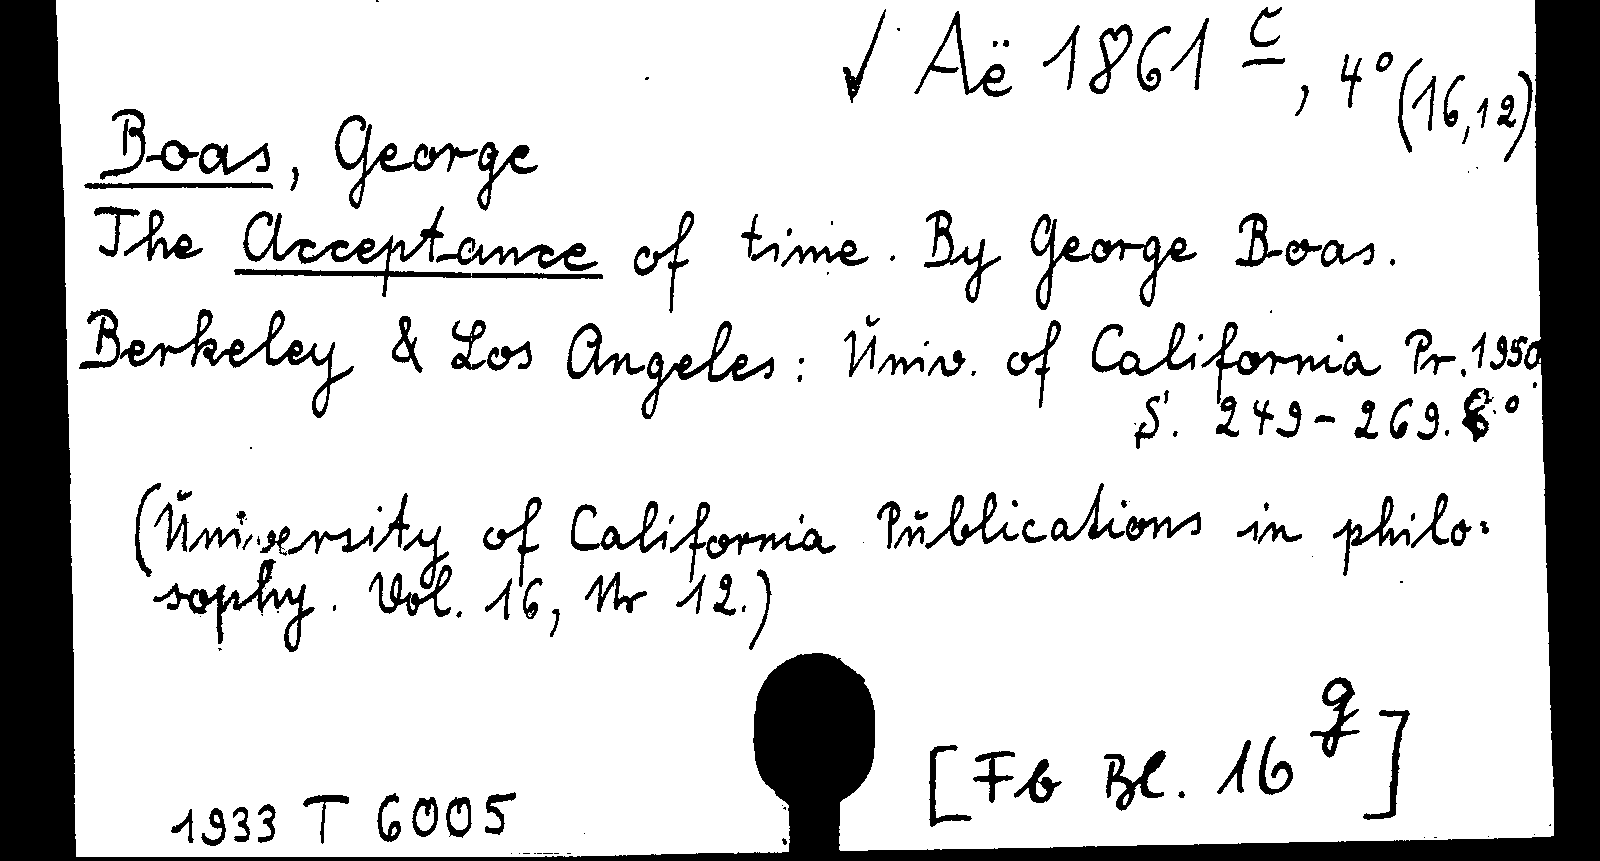 √ Aë 1861 c, 4° (16,12)
Boas, George
The Acceptance of time. By George Boas.
Berkeley & Los Angeles: Univ. of California Pr. 1950.
S. 249-269. 8°
(University of California Publications in philo=
sophy. Vol. 16, Nr 12.)
[Fb Bl. 16 g]
1933 T 6005